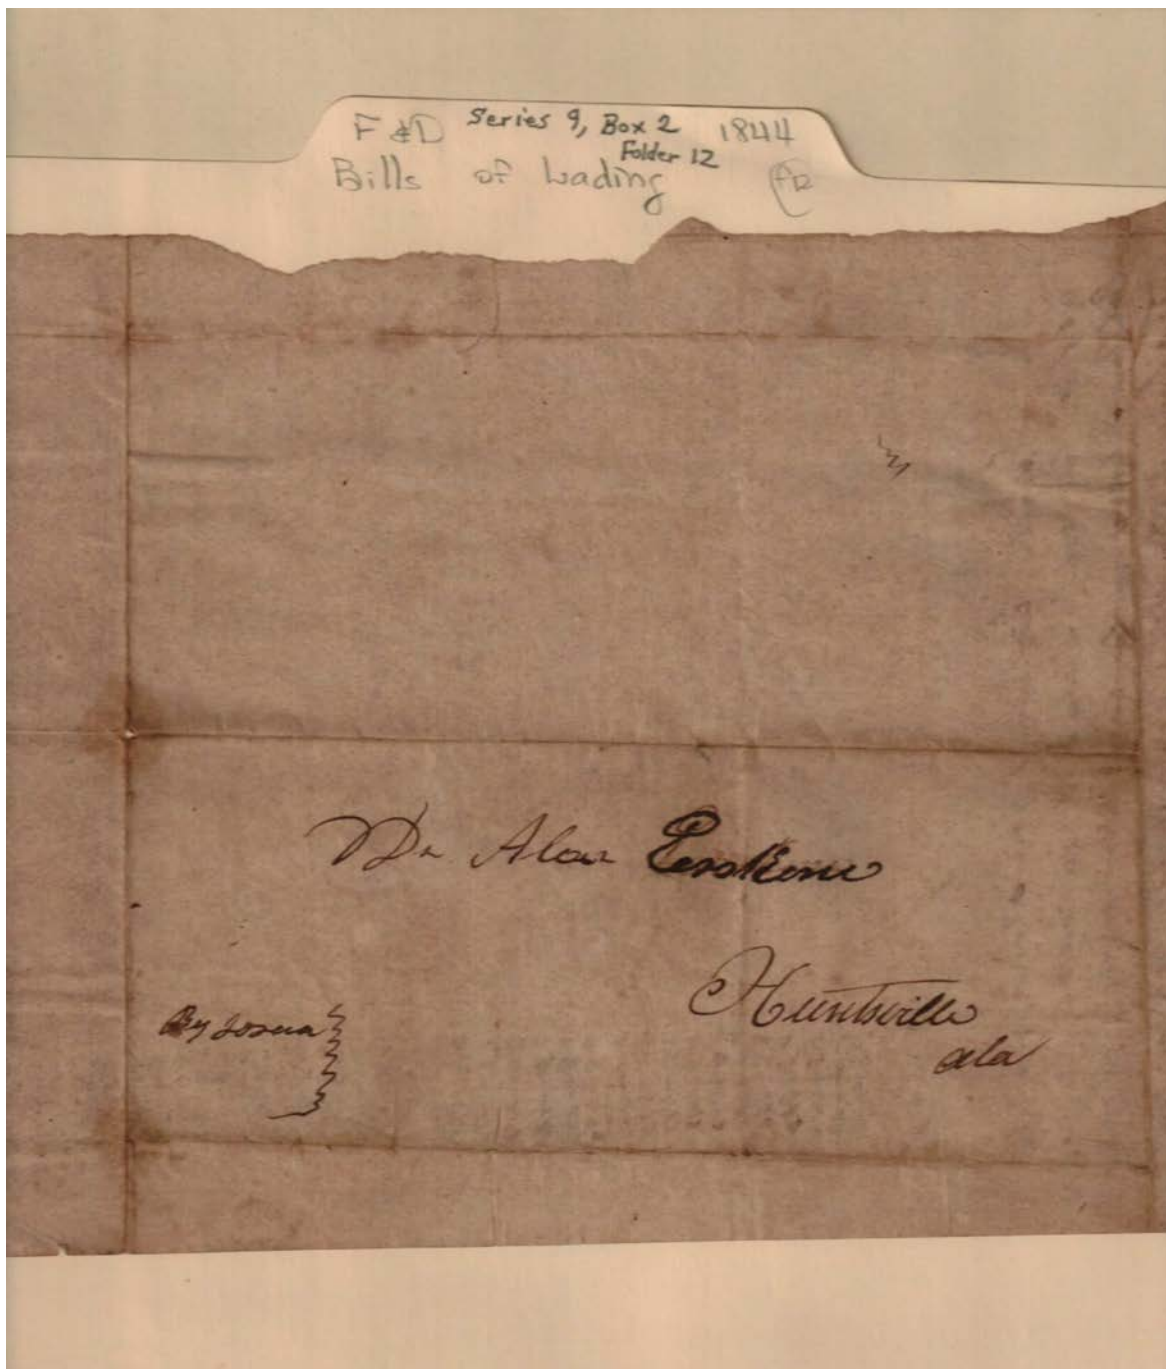 F &D Series 9, Box 2 1844
Folder 12
Bills of Lading
Dr Alex Erskine
Huntsville
Ala
By